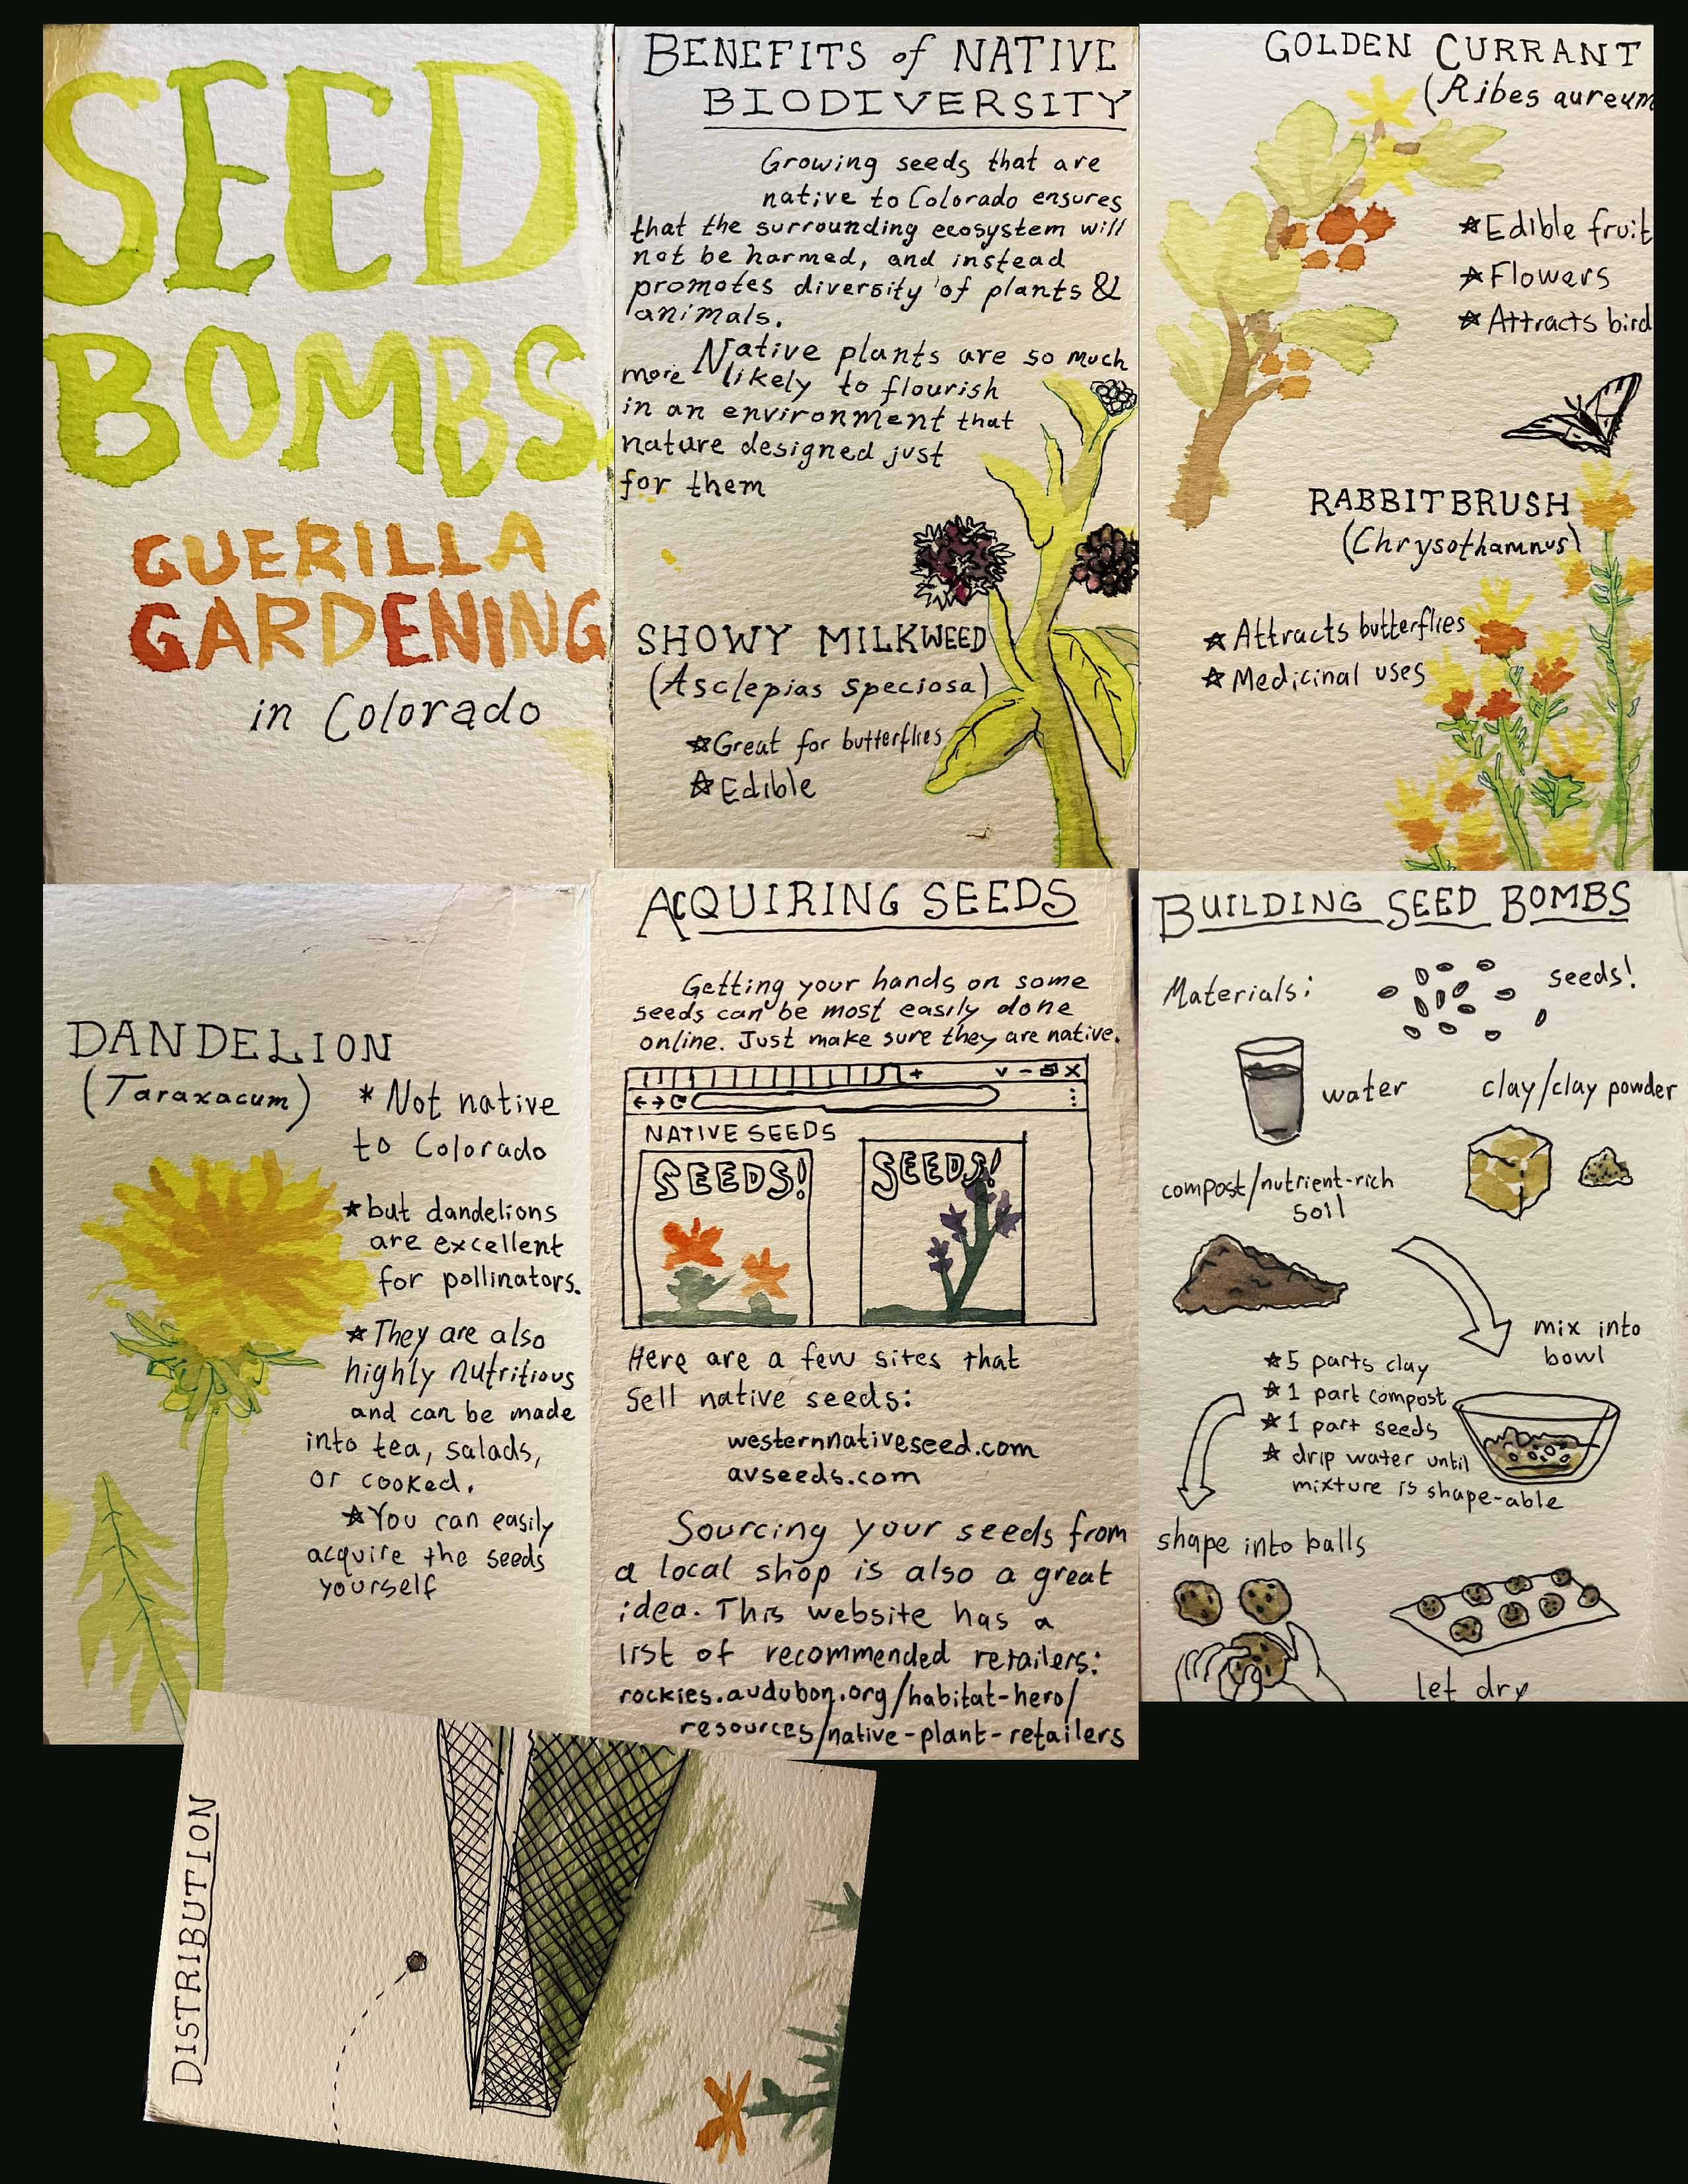 SEED
BOMBS
GUERILLA
GARDENING
in Colorado
BENEFITS of NATIVE
BIODIVERSITY
Growing seeds that are
native to Colorado ensures
that the surrounding ecosystem will
not be harmed, and instead
promotes diversity of plants &
animals.
Native plants are so much
more likely to flourish
in an environment that
nature designed just
for them
SHOWY MILKWEED
(Asclepias speciosa)
☆Great for butterflies
☆Edible
GOLDEN CURRANT
(Ribes aureum
☆Edible fruit
☆Flowers
☆Attracts bird
RABBITBRUSH
(Chrysothamnus)
☆Attracts butterflies
☆Medicinal uses
DANDELION
(Taraxacum)
* Not native
to Colorado
☆but dandelions
are excellent
for pollinators.
☆They are also
highly nutritious
and can be made
into tea, salads,
or cooked.
☆You can easily
acquire the seeds
yourself
ACQUIRING SEEDS
Getting your hands on some
seeds can be most easily done
online. Just make sure they are native.
NATIVE SEEDS
SEEDS!
SEEDS!
Here are a few sites that
sell native seeds:
westernnativeseed.com
avseeds.com
Sourcing your seeds from
a local shop is also a great
idea. This website has a
list of recommended retailers:
rockies.audubon.org/habitat-hero/
resources/native-plant-retailers
BUILDING SEED BOMBS
Materials:
seeds!
water
clay/clay powder
compost/nutrient-rich
soil
mix into
bowl
☆5 parts clay
☆1 part compost
☆1 part seeds
☆ drip water until
mixture is shape-able
shape into balls
let dry
DISTRIBUTION